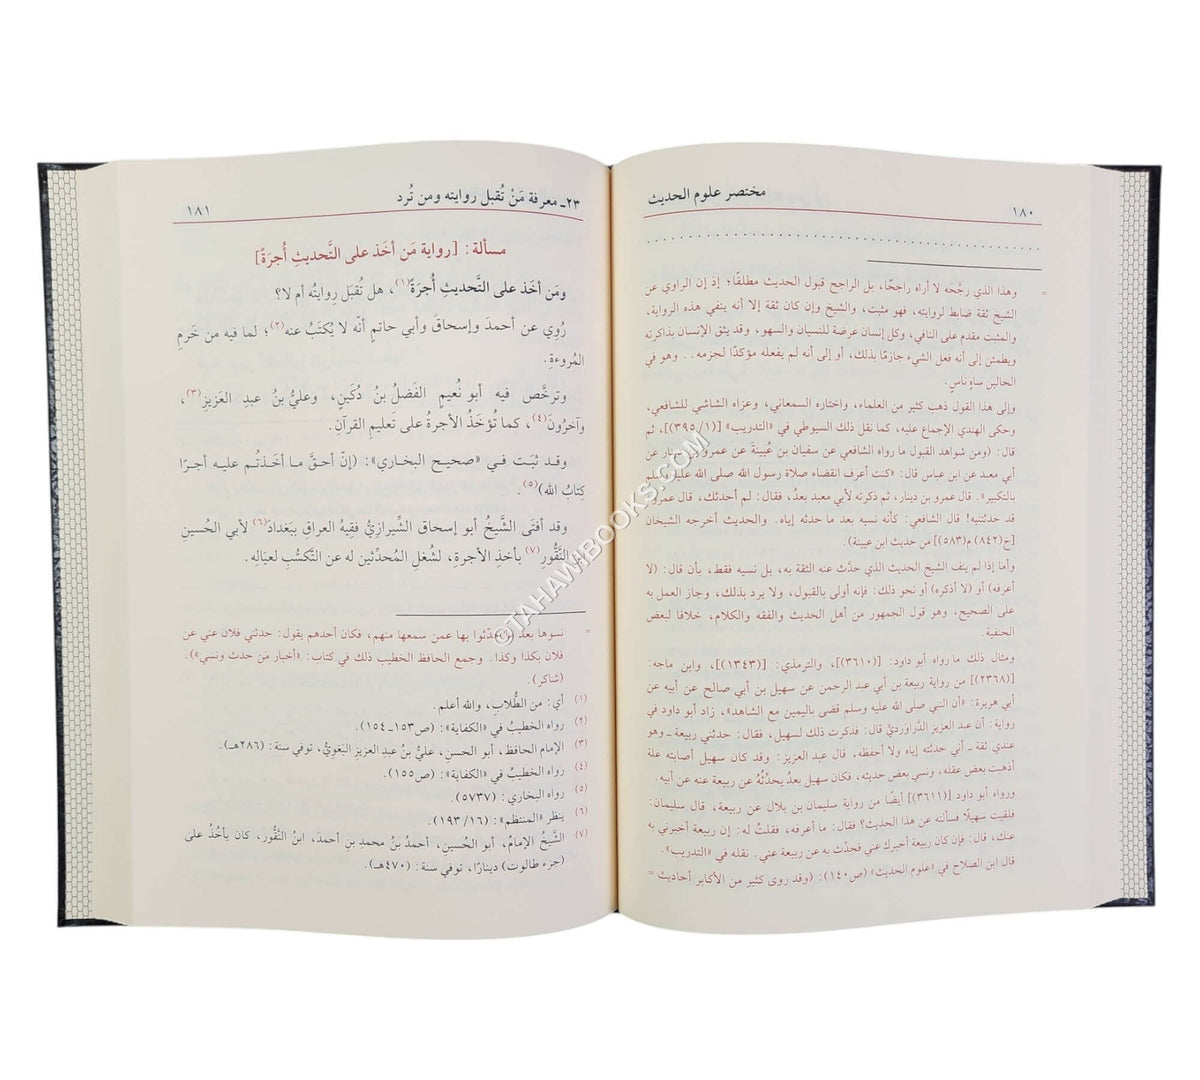 مختصر علوم الحديث
١٨٠
= وهذا الذي رجَّحه لا أراه راجحًا، بل الراجح قبول الحديث مطلقًا؛ إذ إن الراوي عن
الشيخ ثقة ضابط لروايته، فهو مثبت، والشيخ وإن كان ثقة إلا أنه ينفي هذه الرواية،
والمثبت مقدم على النافي، وكل إنسان عرضة للنسيان والسهو، وقد يثق الإنسان بذاكرته
ويطمئن إلى أنه فعل الشيء جازمًا بذلك، أو إلى أنه لم يفعله مؤكدًا لجزمه.. وهو في
الحالين ساهٍ ناسٍ.
وإلى هذا القول ذهب كثير من العلماء، واختاره السمعاني، وعزاه الشاشي للشافعي،
وحكى الهندي الإجماع عليه، كما نقل ذلك السيوطي في «التدريب» [(٣٩٥/١)]، ثم
قال: (ومن شواهد القبول ما رواه الشافعي عن سفيان بن عُيينَة عن عمرو بن دينار عن
أبي معبد عن ابن عباس قال: «كنت أعرف انقضاء صلاة رسول الله صلى الله عليه وسلم
بالتكبير». قال عمرو بن دينار، ثم ذكرته لأبي معبد بعدُ، فقال: لم أحدثك، قال عمرو:
قد حدثتنيه! قال الشافعي: كأنه نسيه بعد ما حدثه إياه. والحديث أخرجه الشيخان
[خ(٨٤٢) م(٥٨٣)] من حديث ابن عيينة).
وأما إذا لم ينف الشيخ الحديث الذي حدَّث عنه الثقة به، بل نسيه فقط، بأن قال: (لا
أعرفه) أو (لا أذكره) أو نحو ذلك: فإنه أولى بالقبول، ولا يرد بذلك، وجاز العمل به
على الصحيح، وهو قول الجمهور من أهل الحديث والفقه والكلام، خلافا لبعض
الحنفية.
ومثال ذلك ما رواه أبو داود: [(٣٦١٠)]، والترمذي: [(١٣٤٣)]، وابن ماجه:
[(٢٣٦٨)] من رواية ربيعة بن أبي عبد الرحمن عن سهيل بن أبي صالح عن أبيه عن
أبي هريرة: «أن النبي صلى الله عليه وسلم قضى باليمين مع الشاهد»، زاد أبو داود في
رواية: أن عبد العزيز الدَّراوَرديَّ قال: فذكرت ذلك لسهيل، فقال: حدثني ربيعة ـ وهو
عندي ثقة ـ أني حدثته إياه ولا أحفظه، قال عبد العزيز: وقد كان سهيل أصابته علة
أذهبت بعض عقله، ونسي بعض حديثه، فكان سهيل بعدُ يحدِّثُهُ عن ربيعة عنه عن أبيه.
ورواه أبو داود [(٣٦١١)] أيضًا من رواية سليمان بن بلال عن ربيعة، قال سليمان:
فلقيت سهيلًا فسألته عن هذا الحديث؟ فقال: ما أعرفه، فقلتُ له: إن ربيعة أخبرني به
عنك، قال: فإن كان ربيعة أخبرك عني فحدِّث به عن ربيعة عني. نقله في «التدريب».
قال ابن الصلاح في «علوم الحديث» (ص١٤٠): (وقد روى كثير من الأكابر أحاديث =
٢٣ـ معرفة مَنْ تُقبل روايته ومن تُرد
١٨١
مسألة: [رواية مَن أخَذ على التَّحديثِ أُجرَةً]
ومَن أخَذ على التَّحديثِ أُجرَةً(١)، هل تُقبَل رِوايتُه أم لا؟
رُوِي عن أحمدَ وإسحاقَ وأبي حاتمٍ أنّه لا يُكتَبُ عنه(٢)؛ لما فيه من خَرمِ
المُروءةِ.
وترخَّص فيه أبو نُعيمٍ الفَضلُ بنُ دُكَينٍ، وعليُّ بنُ عبدِ العَزيزِ(٣)،
وآخرُونَ(٤)، كما تُؤخَذُ الأجرةُ على تَعليمِ القرآنِ.
وقد ثبَت في «صحيح البخاري»: (إنّ أحقَّ ما أخَذتُم عليه أجرًا
كِتابُ الله)(٥).
وقد أفتَى الشَّيخُ أبو إسحاقَ الشِّيرازِيُّ فقِيهُ العراقِ ببَغدادَ(٦) لأبي الحُسينِ
النَّقُّورِ(٧) بأخذِ الأجرةِ، لشُغلِ المُحدِّثين له عن التَّكسُّبِ لعيالِه.
= نسوها بعد ما حدّثوا بها عمن سمعها منهم، فكان أحدهم يقول: حدثني فلان عني عن
فلان بكذا وكذا. وجمع الحافظ الخطيب ذلك في كتاب: «أخبار مَن حدث ونسي»).
(شاكر).
(١) أي: من الطُّلابِ، والله أعلم.
(٢) رواه الخطيبُ في «الكفاية»: (ص١٥٣ـ١٥٤).
(٣) الإمام الحافظ، أبو الحسنِ، عليُّ بنُ عبدِ العزيزِ البَغَويُّ، توفي سنة: (٢٨٦هـ).
(٤) رواه الخطيبُ في «الكفاية»: (ص١٥٥).
(٥) رواه البخاري: (٥٧٣٧).
(٦) ينظر «المنتظم»: (١٩٣/١٦).
(٧) الشَّيخُ الإمامُ، أبو الحُسينِ، أحمدُ بنُ محمدِ بن أحمدَ، ابنُ النَّقُّور، كان يأخُذُ على
(جزء طالوت) دينارًا، توفي سنة: (٤٧٠هـ).
©TAHAWIBOOKS.COM